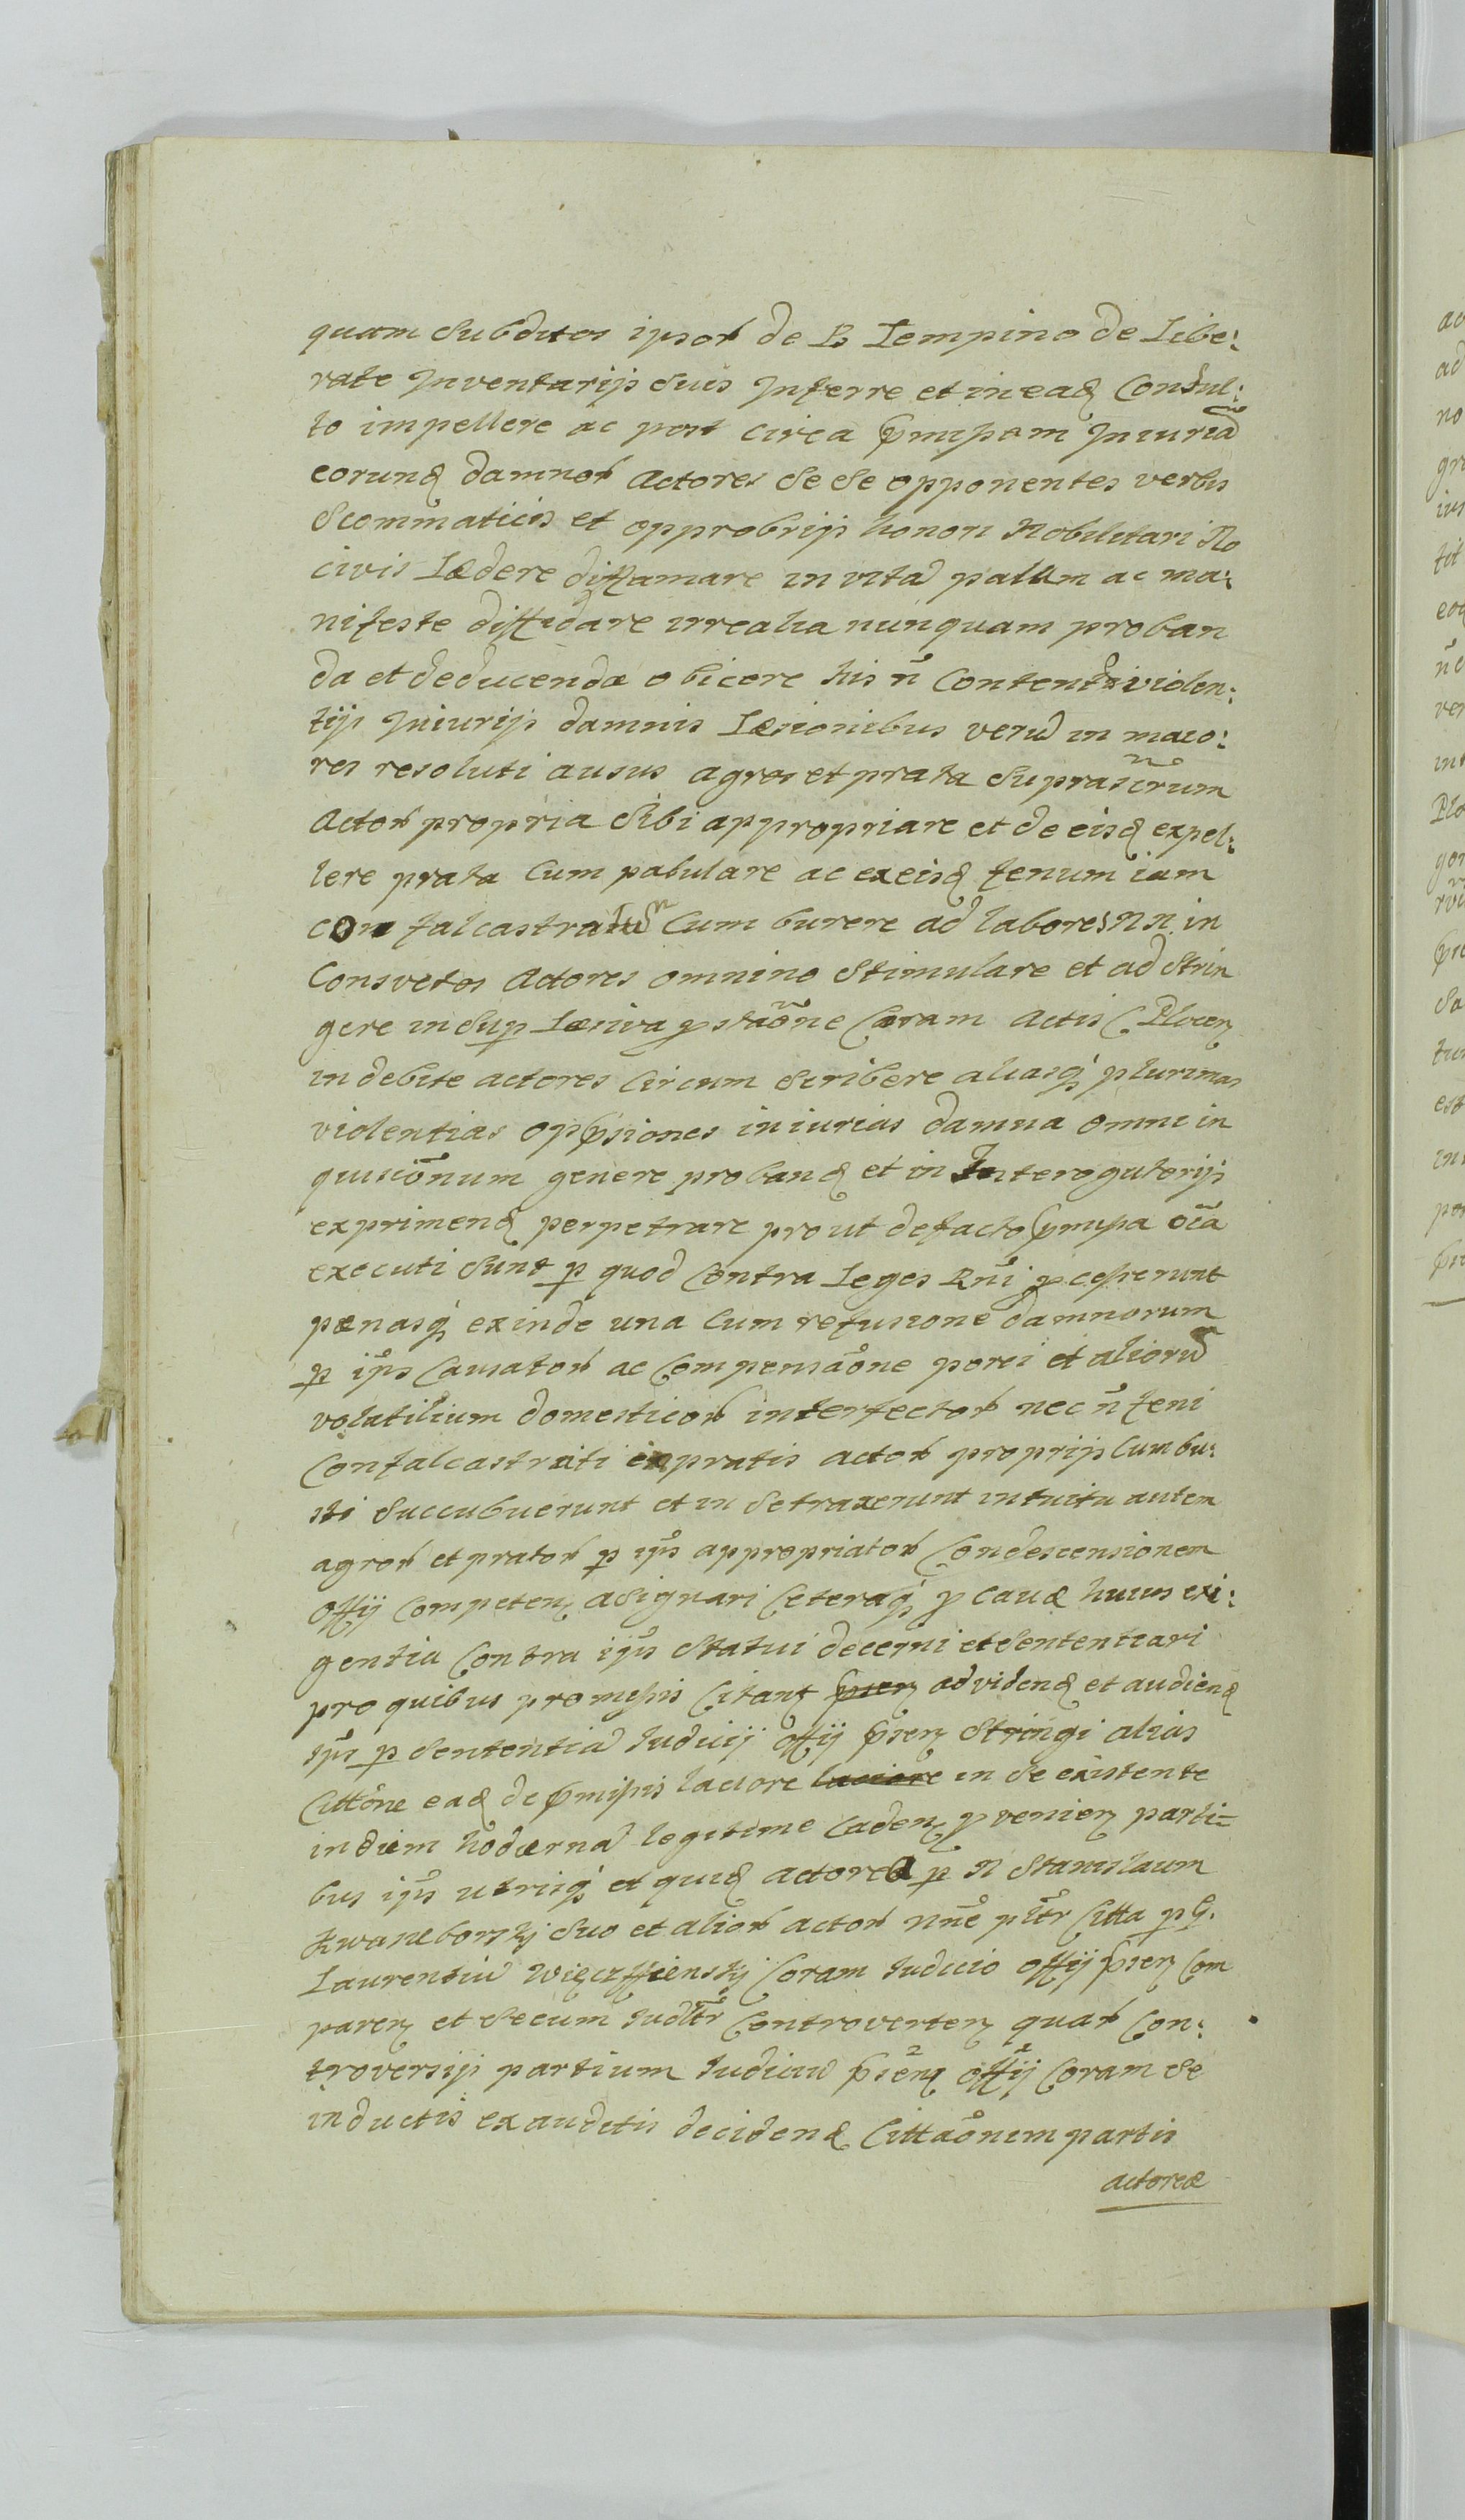 quam Subditos ipsoꝝ de B Lempino de Libe:
rate Inventarijs Suis Inferre et in eaꝗ Consul:
to impellere ac post circa pmissam Iniuriã
eorunꝗ damnoꝝ Actores Se Se opponentes verbis
Scommaticis et opprobrijs honori Nobilitari No
civis Lædere diffamare in vitã palam ac ma:
nifeste diffidare irrealia nunquam proban
da et deducenda obicere his ñ Contenti violen:
tijs Iniurijs damnis Læsionibus verũ in maio:
res resoluti ausus agros et prata Suprascrũm
Actoꝝ propria Sibi appropriare et de eisꝗ expel:
lere prata Cum pabulare ac ex eisꝗ fenum iam
con falcastratum Cum burere ad labores NN. in
Consvetos Actores omnino Stimulare et ad Strin
gere in Sup Læsiva ꝓstãone Coram Actis C Plocen
in debite actores Circum Scribere aliasq̃ plurimas
violentias oppsiones iniurias damna omni in
quisiõnum genere probanꝗ et in Interogatorijs
exprimenꝗ perpetrare prout defacto pmissa oĩa
executi Sunt p quod Contra Leges Rñi ꝓcesserunt
pænasq̃ exinde una Cum refusione damnorum
p ip̃s Causatoꝝ ac Compensãone porci et aliorũ
volatilium domesticoꝝ interfectoꝝ nec ñ feni
Confalcastrati ex pratis actoꝝ proprijs Cumbu:
sti Succubuerunt et in Se traxerunt intuitu autem
agroꝝ et pratoꝝ p ip̃s appropriatoꝝ Condescensionem
Offij Competen asignari Ceteraq̃ ꝓ causæ huius exi:
gentia Contra ip̃s Statui decerni et Sententiari
pro quibus promissis Citant psen ad videnꝗ et audienꝗ
ip̃s p Sententiã Iudicij offij psen Stringi alias
Cittõne eaꝗ de pmissis laciore laciore in Se existente
in diem hodiernã legitime Caden ꝓvenien parti=
bus ip̃s utrisq̃ et quiꝗ actorea p N Stanislaum
Suo et alioꝝ actoꝝ nñe pltr Citta p G.
Laurentiũ Coram Iudicio offij psen Com
paren et Secum Iudltr Controverten quaꝝ Con:
troversijs partium Iudiciũ psen offij Coram Se
inductis ex auditis decidenꝗ Cittãonem partis
actoreæ